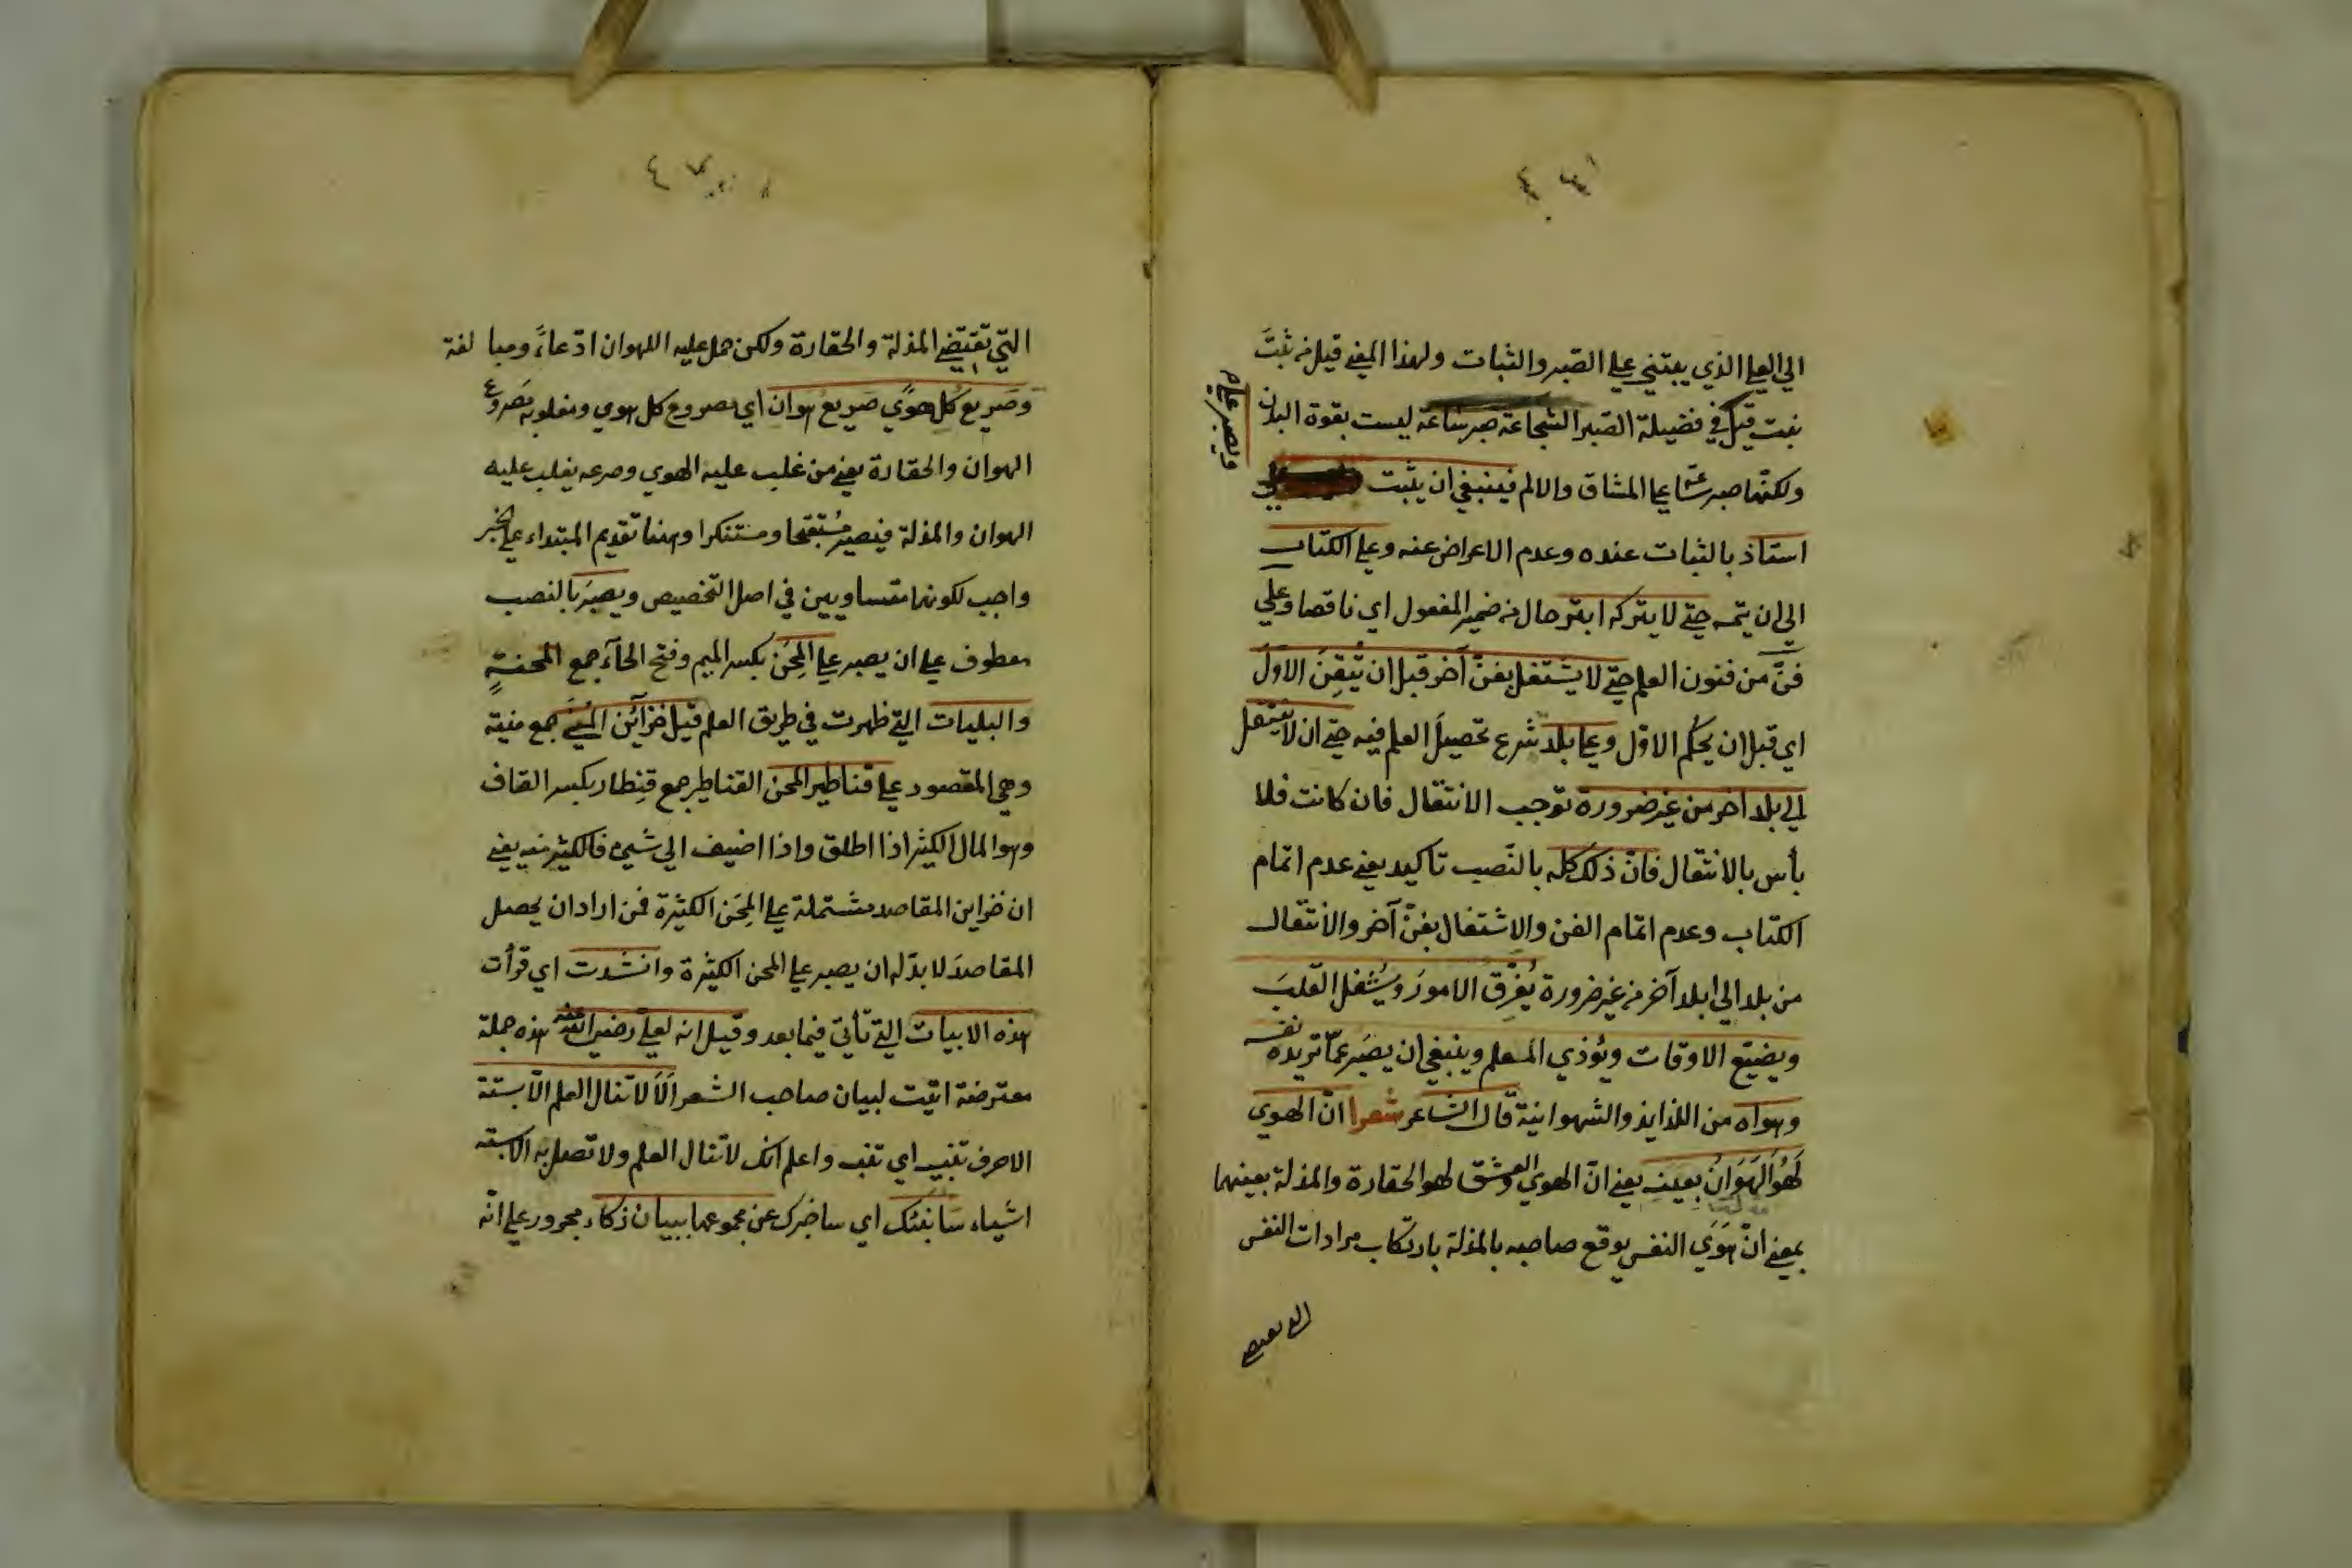 الي العلا الذي يبتني علي الصبر والثبات ولهذا المعني قيل من ثبت
نبت قيل في فضيلة الصبر الشجاعة صبر ساعة ليست بقوة البدن
ولكنها صبر ساعة علي المشاق والالم فينبغي ان يثبت
ويصبر علي
استاذ بالثبات عنده وعدم الاعراض عنه وعلي الكتاب
الي ان يتمه حتي لا يتركه ابتر حال من ضمير المفعول اي ناقصا وعلي
فنّ من فنون العلم حتي لا يشتغل بفنّ آخر قبل ان يُتقِنَ الاوّلَ
اي قبل ان يحكم الاوّل وعلي بلد شرع تحصيلَ العلم فيه حتي ان لا ينتقل
الي بلد اخر من غير ضرورة توجب الانتقال فان كانت فلا
بأس بالانتقال فانّ ذلك كله بالنّصب تاكيد يعني عدم اتمام
الكتاب وعدم اتمام الفن والاشتغال بفنّ آخر والانتقال
من بلد الي ابلد آخر من غير ضرورة يُفَرِّق الامورَ ويُشغل القلبَ
ويضيّع الاوقات ويُؤذي المعلم وينبغي ان يصبَر عمّا تريده نفسه
وهواه من اللذايذ والشهوانية قال الشاعر شعرا انّ الهوي
لَهُوَ الهَوَانُ بعينه يعني انّ الهوي والعشق لهو الحقارة والمذلة بعينهما
بمعني انّ هَوَي النفس يوقع صاحبه بالمذلة بارتكاب مرادات النفس
التي تقتضي
التي تقتضي المذلة والحقارة ولكن حمل عليه اللهوان ادّعاءً ومبالغة
وصَريع كُل هوًي صَريع هوان اي مصروع كل هوي ومغلوبه مَصروع
الهوان والحقارة يعني من غلب عليه الهوي وصرعه يغلب عليه
الهوان والمذلة فيصير مُستقبَحا ومستنكرا وههنا تقديم المبتداء علي الخبر
واجب لكونهما متساويين في اصل التخصيص ويصبَر بالنصب
معطوف علي ان يصبر علي المِحَن بكسر الميم وفتح الحآء جمع المحنةِ
والبليات التي ظهرت في طريق العلم قيل خزآئن المُنَي جمع منية
وهي المقصود علي قناطير المحن القناطير جمع قنِطار بكسر القاف
وهو المال الكثير اذا اطلق واذا اضيف الي شيء فالكثير منه يعني
ان خزاين المقاصد مشتملة علي المِحَن الكثيرة فمن اراد ان يحصل
المقاصدَ لا بدّ له ان يصبر علي المحن الكثيرة وانشدت اي قرأت
هذه الابيات التي تأتي فيما بعد وقيل انه لعلي رضي الله عنه هذه جملة
معترضة اتيت لبيان صاحب الشعر اَلاَ لا تنال العلم الّا بستة
الا حرف تنبيه اي تنبه واعلم انك لا تنال العلم ولا تصل به الا بستة
اشياء سَاُنبئك اي ساخبرك عن مجموعها ببيان ذكاء مجرور علي انّه